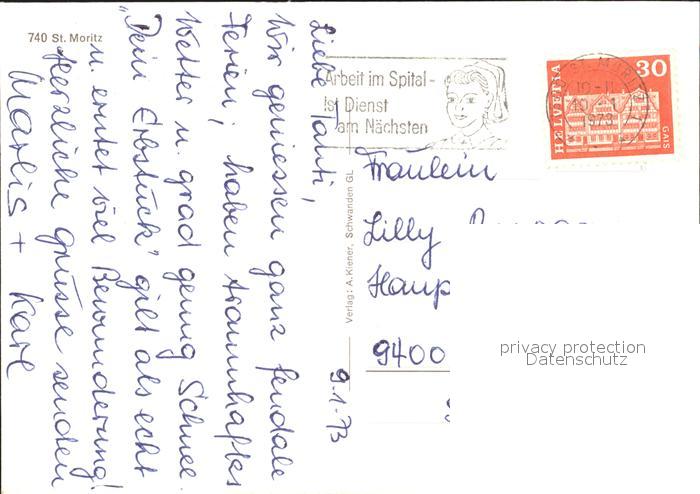 740 St. Moritz
Liebe Tanti,
Wir geniessen ganz feudale
Ferien, haben traumhaftes
Wetter u. grad genug Schnee.
"Dein Erbstück" gilt als echt
u. erntet viel Bewunderung!
Herzliche Grüsse senden
Marlis + Karl
9.1.73
Verlag: A. Kiener, Schwanden GL
Arbeit im Spital-
Ist Dienst
am Nächsten
HELVETIA
30
GAIS
ST. MORITZ
10.-11
10. 1
1973
Fräulein
Lilly
Haup
9400
privacy protection
Datenschutz